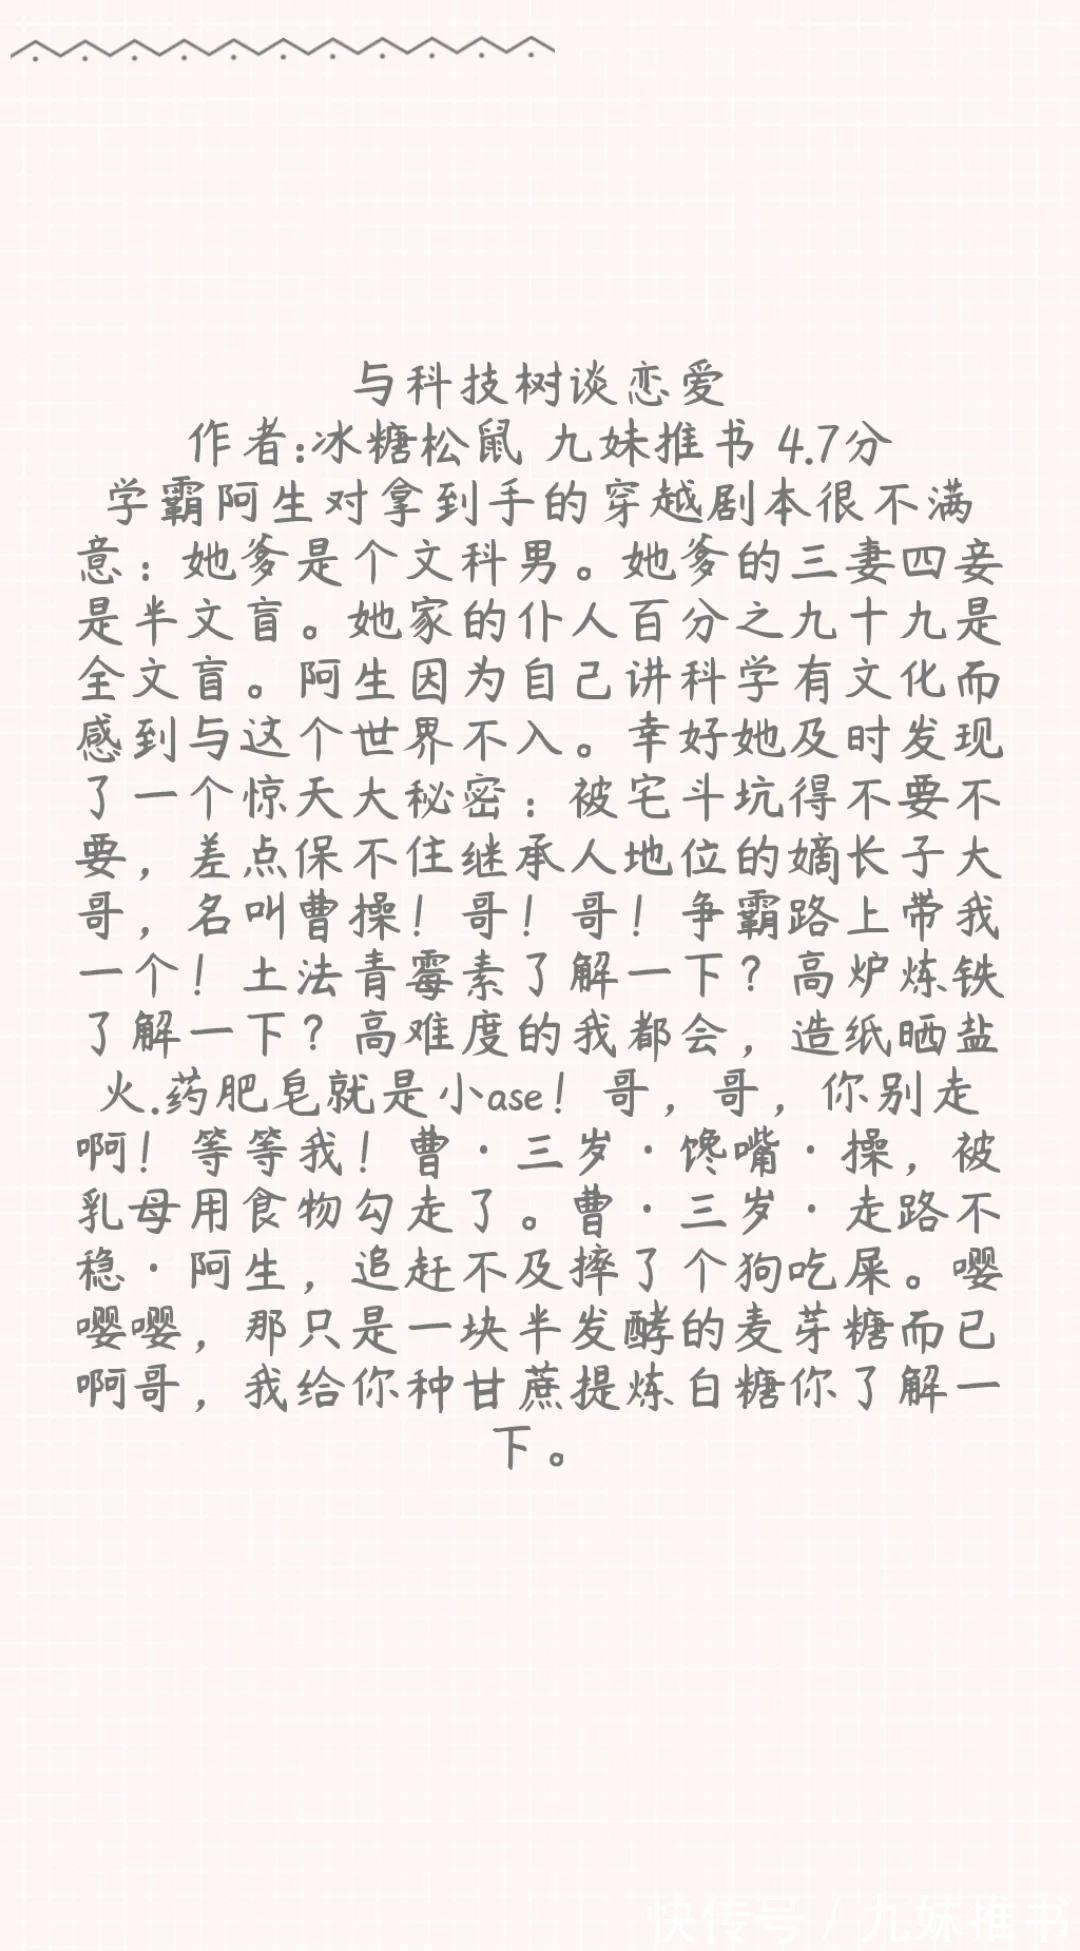 与科技树谈恋爱
作者:冰糖松鼠 九妹推书 4.7分
学霸阿生对拿到手的穿越剧本很不满
意：她爹是个文科男。她爹的三妻四妾
是半文盲。她家的仆人百分之九十九是
全文盲。阿生因为自己讲科学有文化而
感到与这个世界不入。幸好她及时发现
了一个惊天大秘密：被宅斗坑得不要不
要，差点保不住继承人地位的嫡长子大
哥，名叫曹操！哥！哥！争霸路上带我
一个！土法青霉素了解一下？高炉炼铁
了解一下？高难度的我都会，造纸晒盐
火.药肥皂就是小ase！哥，哥，你别走
啊！等等我！曹·三岁·馋嘴·操，被
乳母用食物勾走了。曹·三岁·走路不
稳·阿生，追赶不及摔了个狗吃屎。嘤
嘤嘤，那只是一块半发酵的麦芽糖而已
啊哥，我给你种甘蔗提炼白糖你了解一
下。
快传号 / 九妹推书